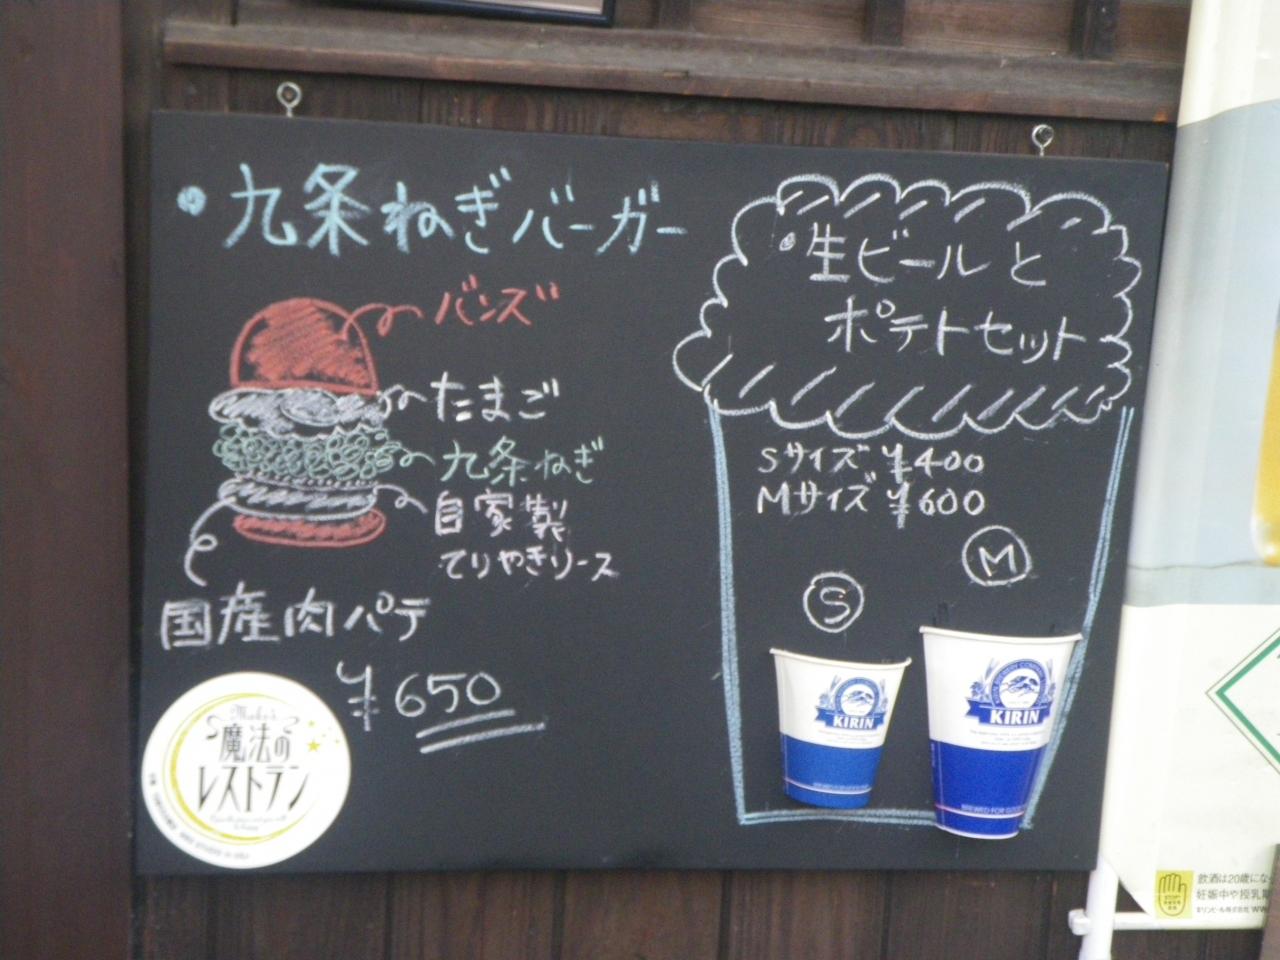 九条ねぎバーガー
バンズ
たまご
九条ねぎ
自家製
てりやきソース
国産肉パテ
¥650
魔法の
レストラン
生ビールと
ポテトセット
Sサイズ ¥400
Mサイズ ¥600
S
M
KIRIN
KIRIN
BREWED FOR GOOD
飲酒は20歳にな
妊娠中や授乳期
キリンビール株式会社 WW
STOP